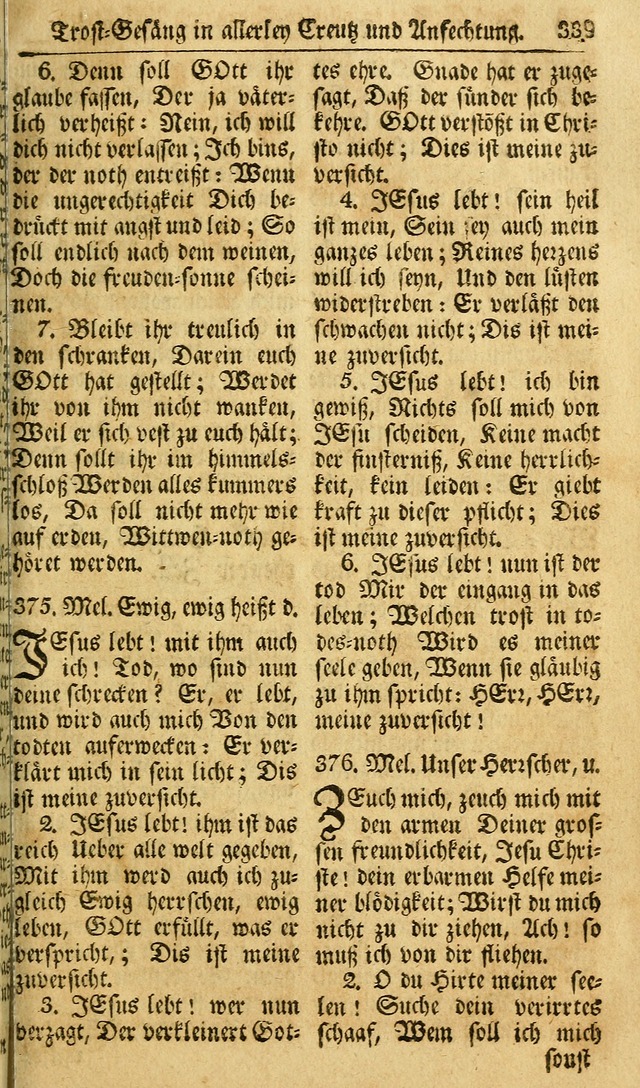 Trost-Gesäng in allerley Creutz und Anfechtung. 339
6. Denn soll GOtt ihr
glaube fassen, Der ja väter-
lich verheißt: Nein, ich will
dich nicht verlassen; Ich bins,
der der noth entreißt: Wenn
die ungerechtigkeit Dich be-
drückt mit angst und leid; So
soll endlich nach dem weinen,
Doch die freuden-sonne schei-
nen.
7. Bleibt ihr treulich in
den schranken, Darein euch
GOtt hat gestellt; Werdet
ihr von ihm nicht wanken,
Weil er sich vest zu euch hält;
Denn sollt ihr im himmels-
schloß Werden alles kummers
los, Da soll nicht mehr wie
auf erden, Wittwen-noth ge-
höret werden.
375. Mel. Ewig, ewig heißt d.
JEsus lebt! mit ihm auch
ich! Tod, wo sind nun
deine schrecken? Er, er lebt,
und wird auch mich Von den
todten auferwecken: Er ver-
klärt mich in sein licht; Dis
ist meine zuversicht.
2. JEsus lebt! ihm ist das
reich Ueber alle welt gegeben,
Mit ihm werd auch ich zu-
gleich Ewig herrschen, ewig
leben, GOtt erfüllt, was er
verspricht,; Dis ist meine
zuversicht.
3. JEsus lebt! wer nun
verzagt, Der verkleinert Got-
tes ehre. Gnade hat er zuge-
sagt, Daß der sünder sich be-
kehre. GOtt verstößt in Chri-
sto nicht; Dies ist meine zu-
versicht.
4. JEsus lebt! sein heil
ist mein, Sein sey auch mein
ganzes leben; Reines herzens
will ich seyn, Und den lüsten
widerstreben: Er verläßt den
schwachen nicht; Dis ist mei-
ne zuversicht.
5. JEsus lebt! ich bin
gewiß, Nichts soll mich von
JEsu scheiden, Keine macht
der finsterniß, Keine herrlich-
keit, kein leiden: Er giebt
kraft zu dieser pflicht; Dies
ist meine zuversicht.
6. JEsus lebt! nun ist der
tod Mir der eingang in das
leben; Welchen trost in to-
des-noth Wird es meiner
seele geben, Wenn sie gläubig
zu ihm spricht: HErr, HErr,
meine zuversicht!
376. Mel. Unser Herrscher, u.
ZEuch mich, zeuch mich mit
den armen Deiner gros-
sen freundlichkeit, Jesu Chri-
ste! dein erbarmen Helfe mei-
ner blödigkeit; Wirst du mich
nicht zu dir ziehen, Ach! so
muß ich von dir fliehen.
2. O du Hirte meiner see-
len! Suche dein verirrtes
schaaf, Wem soll ich mich
sonst